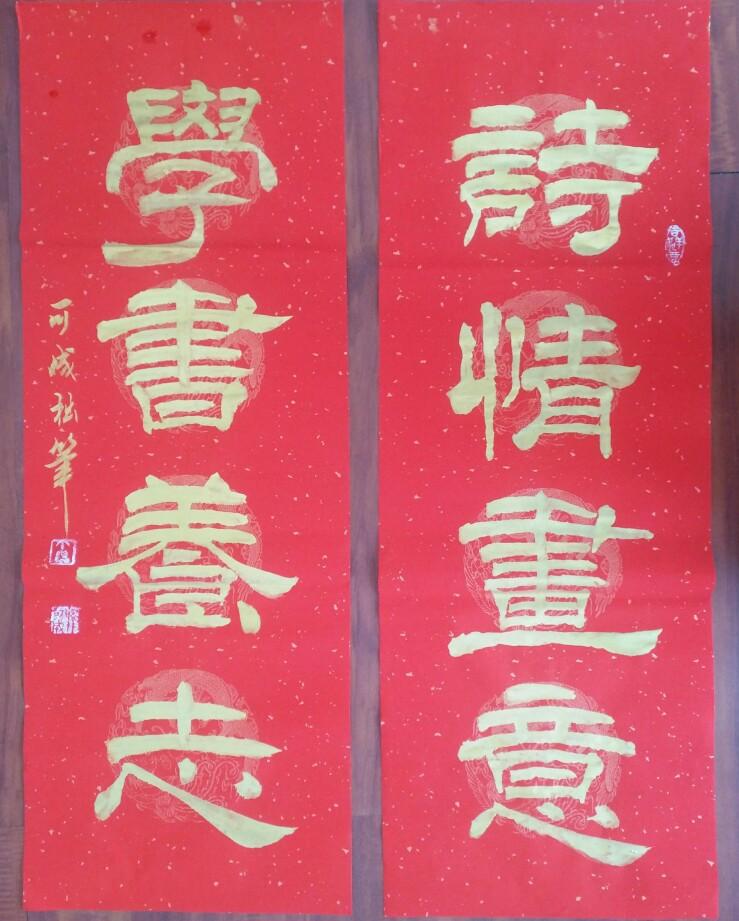 詩情畫意
學書養志
可成拙筆